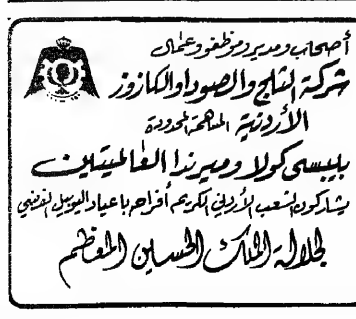 أصحاب ومدير وموظفو وعمال
شركة الثلج والصودا والكازوز
الأردنية المساهمة المحدودة
بيبسي كولا وميرندا العالميتين
يشاركون الشعب الأردني الكريم أفراحه باعياد اليوبيل الفضي
لجلالة الملك الحسين المعظم